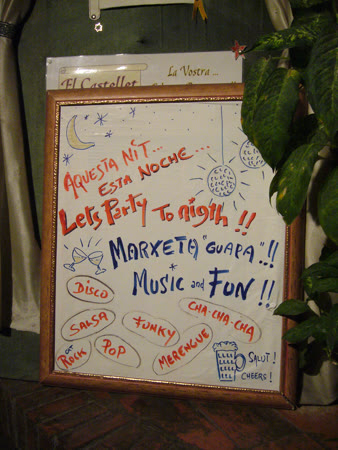 El Castellet
La Vostra ...
AQUESTA NIT...
ESTA NOCHE...
Let's Party To nigth !!
MARXETA "GUAPA"..!!
+
MUSIC and FUN !!
DISCO
CHA-CHA-CHA
SALSA
FUNKY
MERENGUE
ROCK
POP
SALUT !
CHEERS !